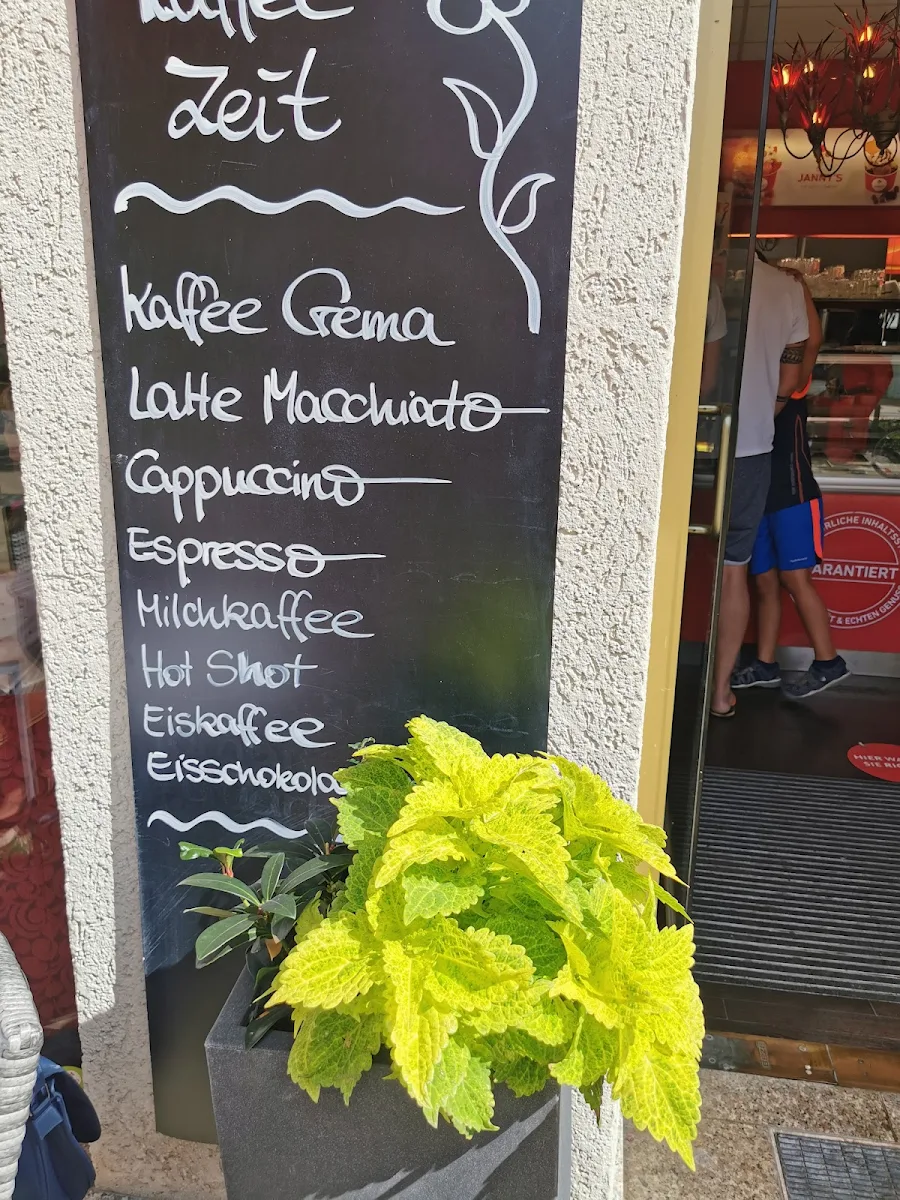 Kaffee
Zeit
Kaffee Crema
Latte Macchiato
Cappuccino
Espresso
Milchkaffee
Hot Shot
Eiskaffee
Eisschokola
JANNY'S
RLICHE INHALTSS
ARANTIERT
T & ECHTEN GENUSS
HIER WA
SIE RIC